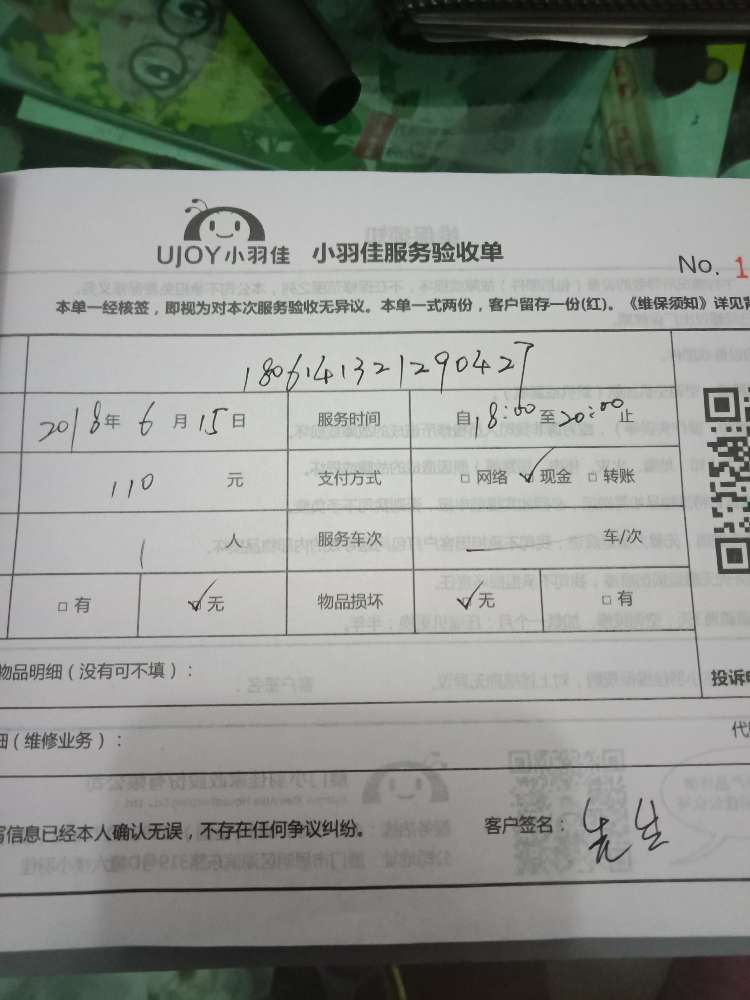 UJOY小羽佳 小羽佳服务验收单
No. 1
本单一经核签，即视为对本次服务验收无异议。本单一式两份，客户留存一份(红)。《维保须知》详见背
1806141321290427
2018年6月15日 服务时间 自18:00至20:00止
110 元 支付方式 □网络 ☑现金 □转账
1 人 服务车次 — 车/次
□有 ☑无 物品损坏 ☑无 □有
物品明细（没有可不填）：
投诉
细（维修业务）：
写信息已经本人确认无误，不存在任何争议纠纷。 客户签名：先生